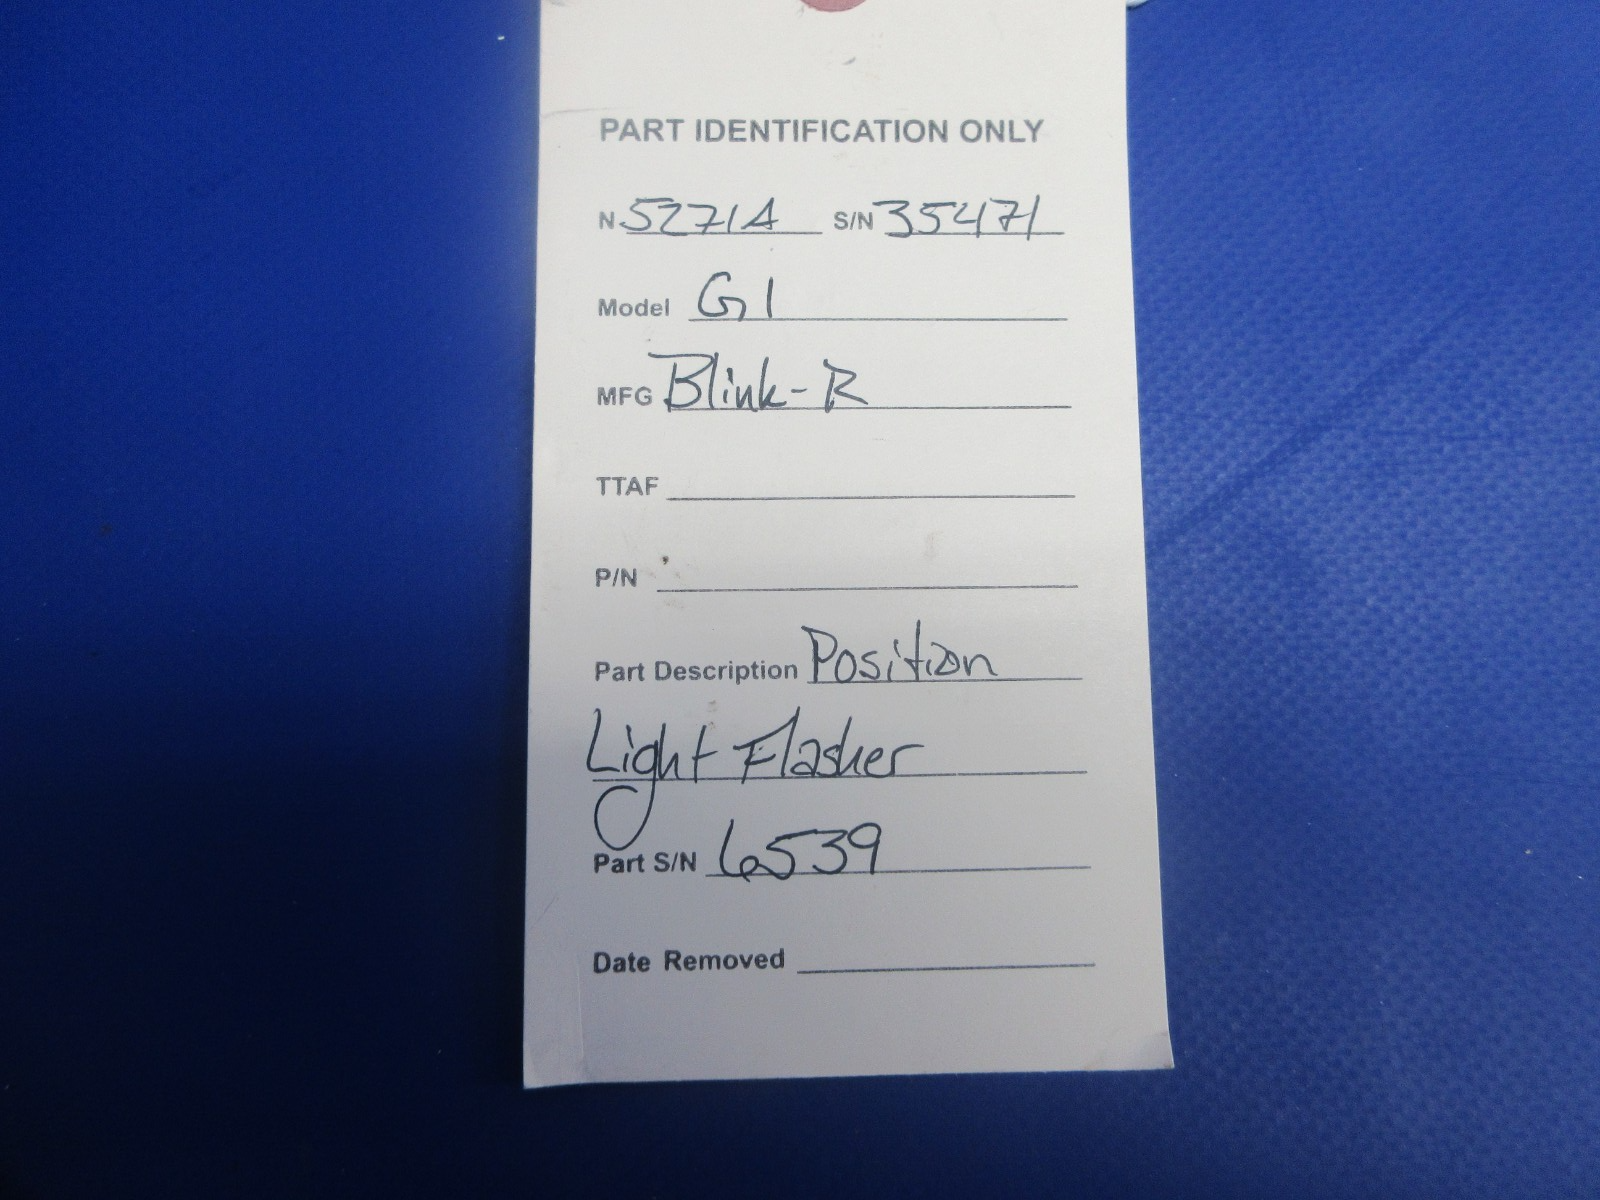 PART IDENTIFICATION ONLY
N 5271A S/N 35471
Model G1
MFG Blink-R
TTAF
P/N
Part Description Position
Light Flasher
Part S/N 6539
Date Removed